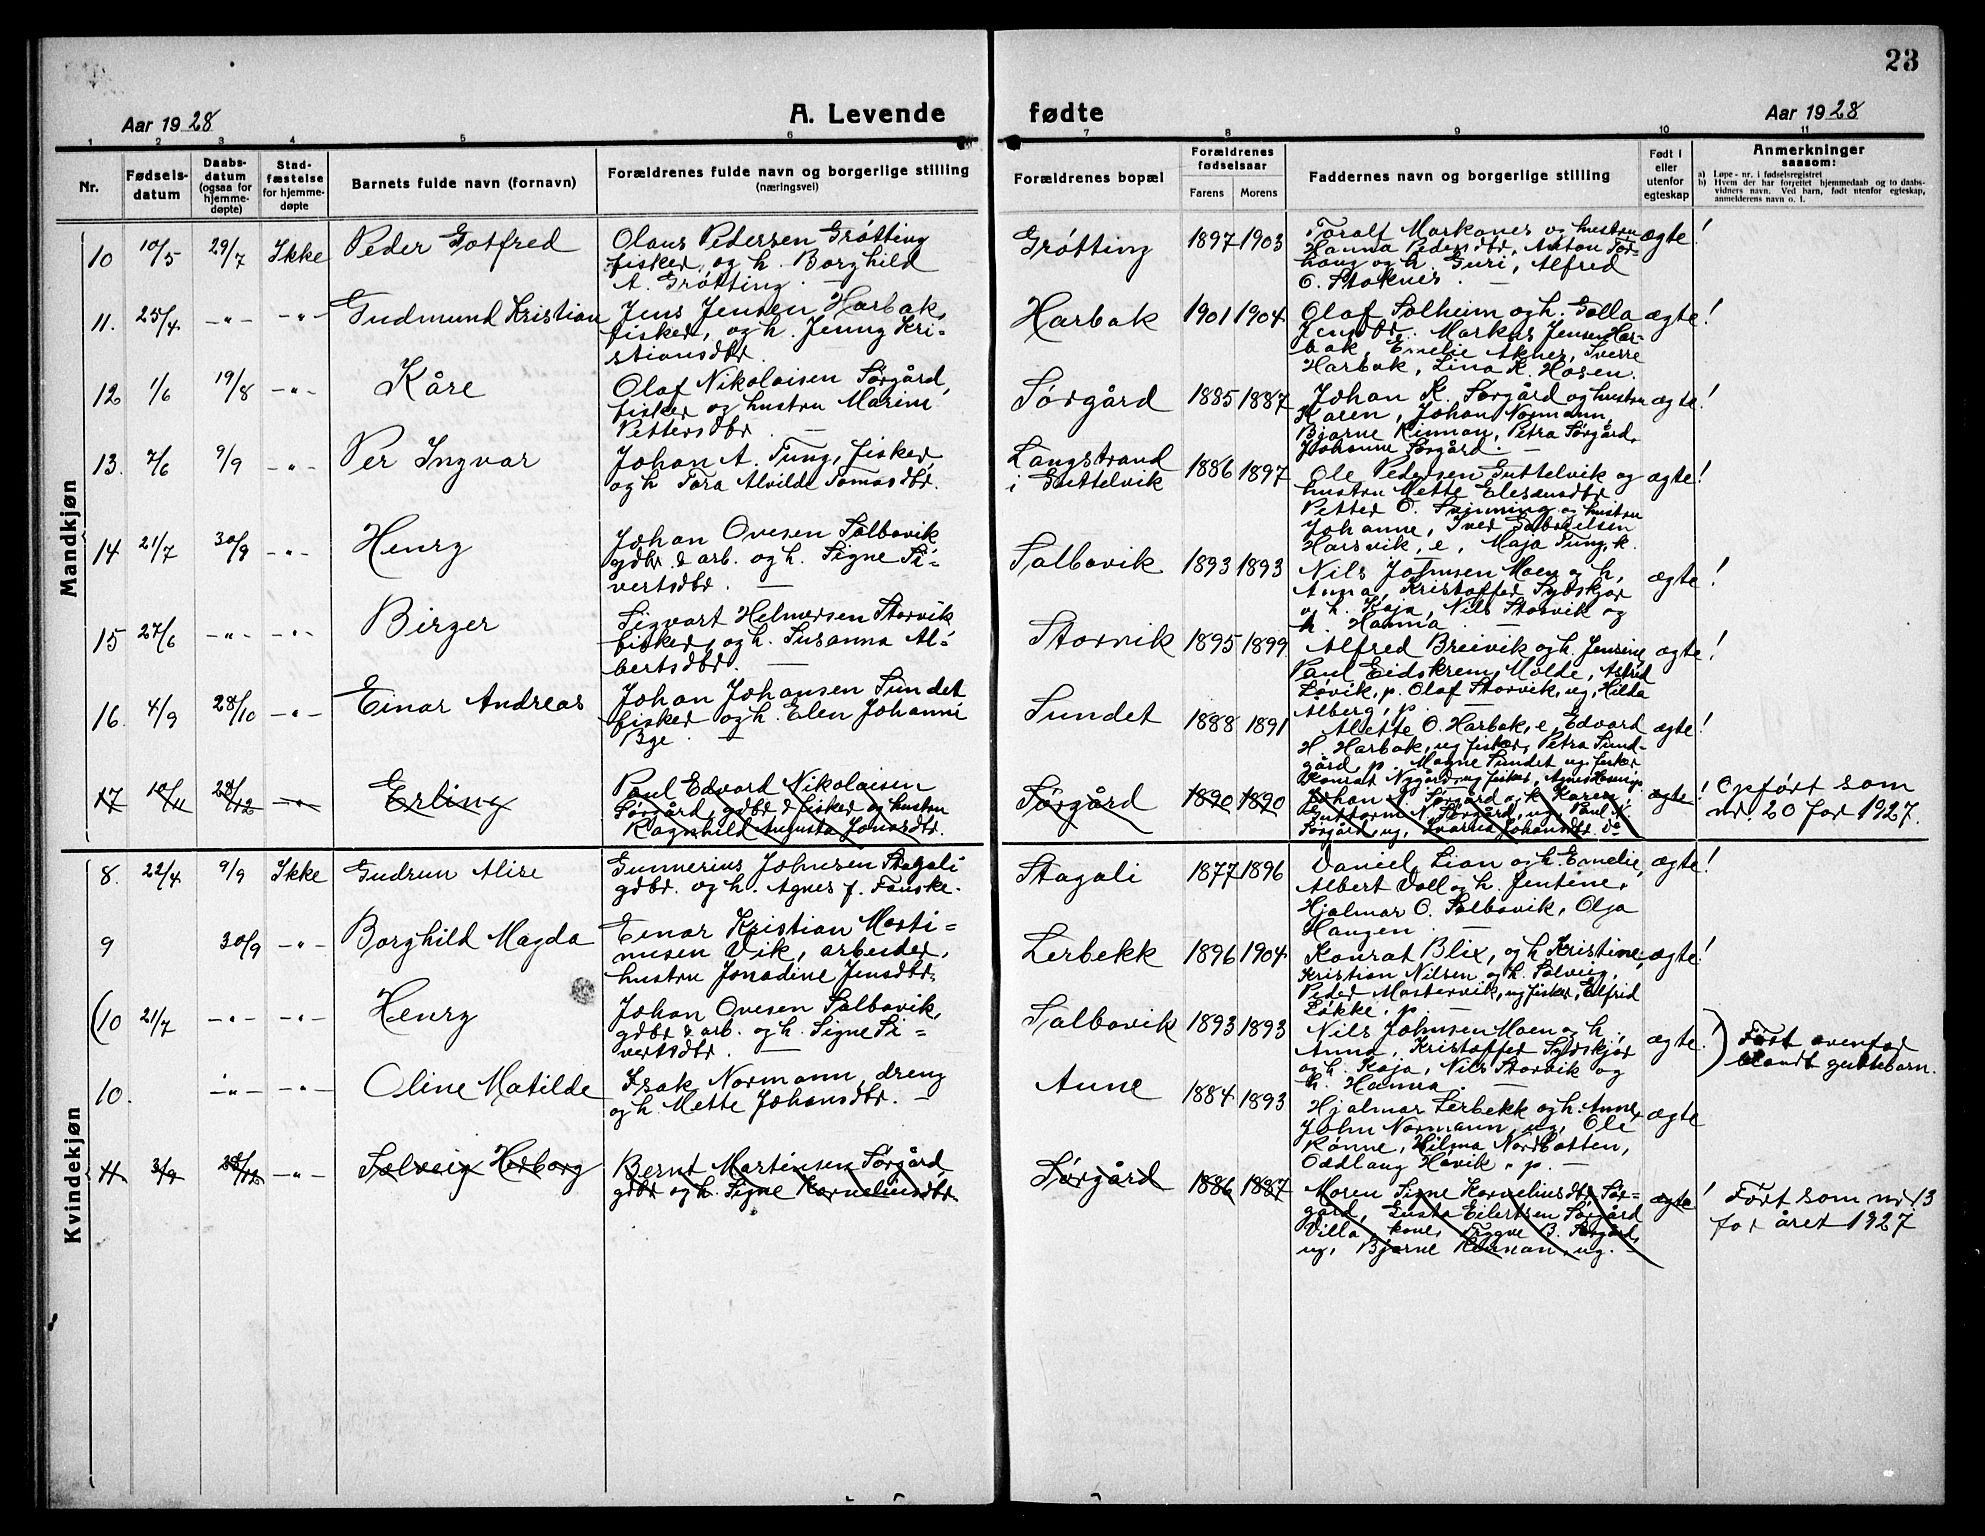 23
Aar 1928
A. Levende
fødte
Aar 1928
1 2 3 4 5 6 7 8 9 10 11
Nr.
Fødsels-
datum
Daabs-
datum
(ogsaa for
hjemme-
døpte)
Stad-
fæstelse
for hjemme-
døpte
Barnets fulde navn (fornavn)
Forældrenes fulde navn og borgerlige stilling
(næringsvei)
Forældrenes bopæl
Forældrenes
fødselsaar
Farens Morens
Faddernes navn og borgerlige stilling
Født i
eller
utenfor
egteskap
Anmerkninger
saasom:
a) Løpe-nr. i fødselsregistret
b) Hvem der har forrettet hjemmedaab og to daabs-
vidners navn. Ved barn, født utenfor egteskap,
anmelderens navn o. l.
Mandkjøn
10 10/5 29/7 Ikke Peder Gotfred
Olaus Pedersen Grøtting
fisker og h. Borghild
A. Grøtting. —
Grøtting 1897 1903
Toralf Markanes og hustru
Hanna Pedersdtr, Anton Tør-
haug og h. Guri, Alfred
O. Stoknes. —
ægte!
11. 25/4 -"- -"- Gudmund Kristian
Jens Jensen Harbak,
fisker, og h. Jenny Kri-
stiansdtr.
Harbak 1901 1904
Olaf Solheim og h. Golla
Jensdtr. Markus Jensen Har-
bak, Emelie Aknes, Sverre
Harbak, Lina K. Hosen.
ægte!
12 1/6 19/8 -"- Kåre
Olaf Nikolaisen Sørgård,
fisker og hustru Marine
Pettersdtr. —
Sørgård 1885 1887
Johan K. Sørgård og hustru
Karen, Johan Normann,
Bjarne Kinnan, Petra Sørgård,
Johanne Sørgård. —
ægte!
13. 7/6 9/9 -"- Per Ingvar
Johan A. Tung, fisker,
og h Tora Alvilde Tomasdtr.
Langstrand
i Guttelvik 1886 1897
Ole Pedersen Guttelvik og
hustru Mette Eleseusdtr
Petter O. Svenning og hustru
Johanne, Iver Gabrielsen
Harsvik, e, Maja Tung, k.
ægte!
14 21/7 30/9 -"- Henry
Johan Ovesen Salbovik
gdbr & arb. og h. Signe Si-
vertsdtr. —
Salbovik 1893 1893
Nils Johnsen Moen og h,
Anna, Kristoffer Sydskjør
og h. Kaja, Nils Storvik og
h. Hanna. —
ægte!
15 27/6 -"- -"- Birger
Sigvart Helmersen Storvik
fisker, og h. Susanna Al-
bertsdtr. —
Storvik 1895 1899
Alfred Breivik og h. Jensine,
Paul Eidskrem, Molde, Astrid
Løvik, p. Olaf Storvik, ug, Hilda
Alberg, p. —
ægte!
16. 4/9 28/10 -"- Einar Andreas
Johan Johansen Sundet
fisker og h. Elen Johanne
Bge. —
Sundet 1888 1891
Alette O. Harbak, e, Edvard
H. Harbak, ug fisker, Petra Sund-
gård, p. Magne Sundet ug. fisker
Konrat Nygård, ug fisker,
ægte!
17 10/11 28/12 -"- Erling
Paul Edvard Nikolaisen
Sørgård, gdbr & fisker og hustru
Ragnhild Augusta Jonasdtr.
Sørgård 1890 1890
Johan N. Sørgård og h Karen,
Guttorm N. Sørgård, ug, Paul A.
Sørgård, ug, Johansdtr. do
ægte!
Opført som
nr. 20 for 1927.
Kvindekjøn
8. 22/4 9/9 Ikke Gudrun Alise
Gunnerius Johnsen Stagali
gdbr. og h. Agnes f. Fauske.
Stagali 1877 1896
Daniel Lian og h. Emelie,
Albert Voll og h. Jentine,
Hjalmar O. Salbovik, Olga
Haugen —
ægte!
9 30/9 -"- Borghild Magda
Einar Kristian Marti-
nusen Vik, arbeider,
hustru Jonadine Jensdtr.
Lerbekk 1896 1904
Konrat Blix, og h Kristine,
Kristian Nilsen og h. Solveig,
Peder Mastervik, ug fisker, Elfrid
Løkke, p. —
ægte!
(10 21/7 -"- -"- Henry
Johan Ovesen Salbovik,
gdbr & arb. og h. Signe Si-
vertsdtr. —
Salbovik 1893 1893
Nils Johnsen Moen og h.
Anna, Kristoffer Sydskjør
og h. Kaja, Nils Storvik og
h. Hanna. —
ægte!
) Ført ovenfor
blandt guttebarn.
10. -"- -"- Oline Matilde
Isak Normann, dreng
og h. Mette Johansdtr. —
Aune 1884 1893
Hjalmar Lerbekk og h. Anne,
John Normann, ug, Ole
Rønne, Hilma Nordbotten,
Oddlaug Hovik, p. —
ægte
11 3/9 28/12 -"- Solveig Herborg
Bernt Martinsen Sørgård
gdbr og h. Signe Kornelinsdtr
Sørgård 1886 1887
Moren Signe Korneliusdtr Sør-
gård, Gusta Eilertsen Sørgård
Villa, kone, Trygve B. Sørgård,
ug, Bjarne Kinnan, ug. —
ægte!
Ført som nr 13
for året 1927